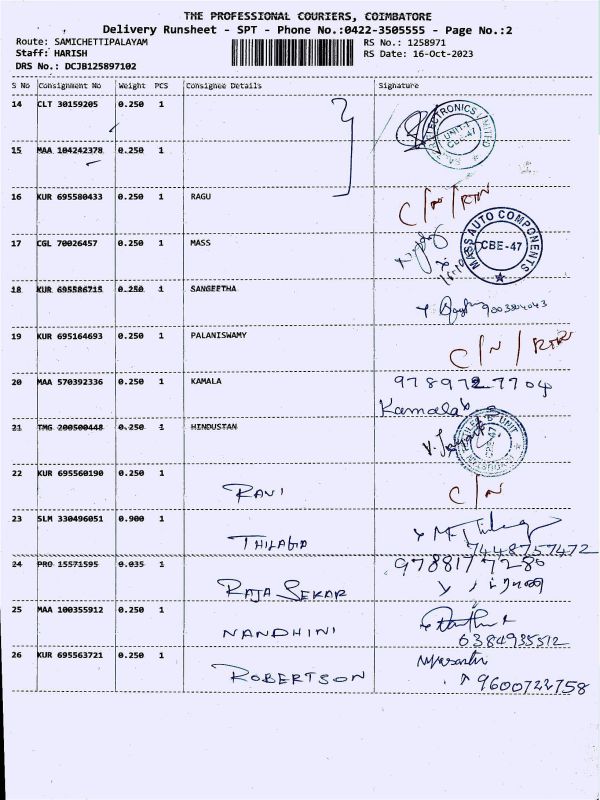 THE PROFESSIONAL COURIERS, COIMBATORE
Delivery Runsheet - SPT - Phone No.:0422-3505555 - Page No.:2
Route: SAMICHETTIPALAYAM
RS No.: 1258971
Staff: HARISH
RS Date: 16-Oct-2023
DRS No.: DCJB125897102
S No Consignment No Weight PCS Consignee Details Signature
14 CLT 30159205 0.250 1
ELECTRONICS LIMITED UNIT-1 CBE-47
15 MAA 104242378 0.250 1
16 KUR 695580433 0.250 1 RAGU
17 CGL 70026457 0.250 1 MASS
MASS AUTO COMPONENTS CBE-47
18 KUR 695586715 0.250 1 SANGEETHA
19 KUR 695164693 0.250 1 PALANISWAMY
C/N/RTN
20 MAA 570392336 0.250 1 KAMALA
9789727704
Kamala
21 TMG 200500448 0.250 1 HINDUSTAN
22 KUR 695560190 0.250 1
RAVI C/N
23 SLM 330496051 0.900 1
THILAGA
7448757472
24 PRO 15571595 0.035 1
9788177280
RAJA SEKAR
25 MAA 100355912 0.250 1
NANDHINI
6384935512
26 KUR 695563721 0.250 1
ROBERTSON
9600723758